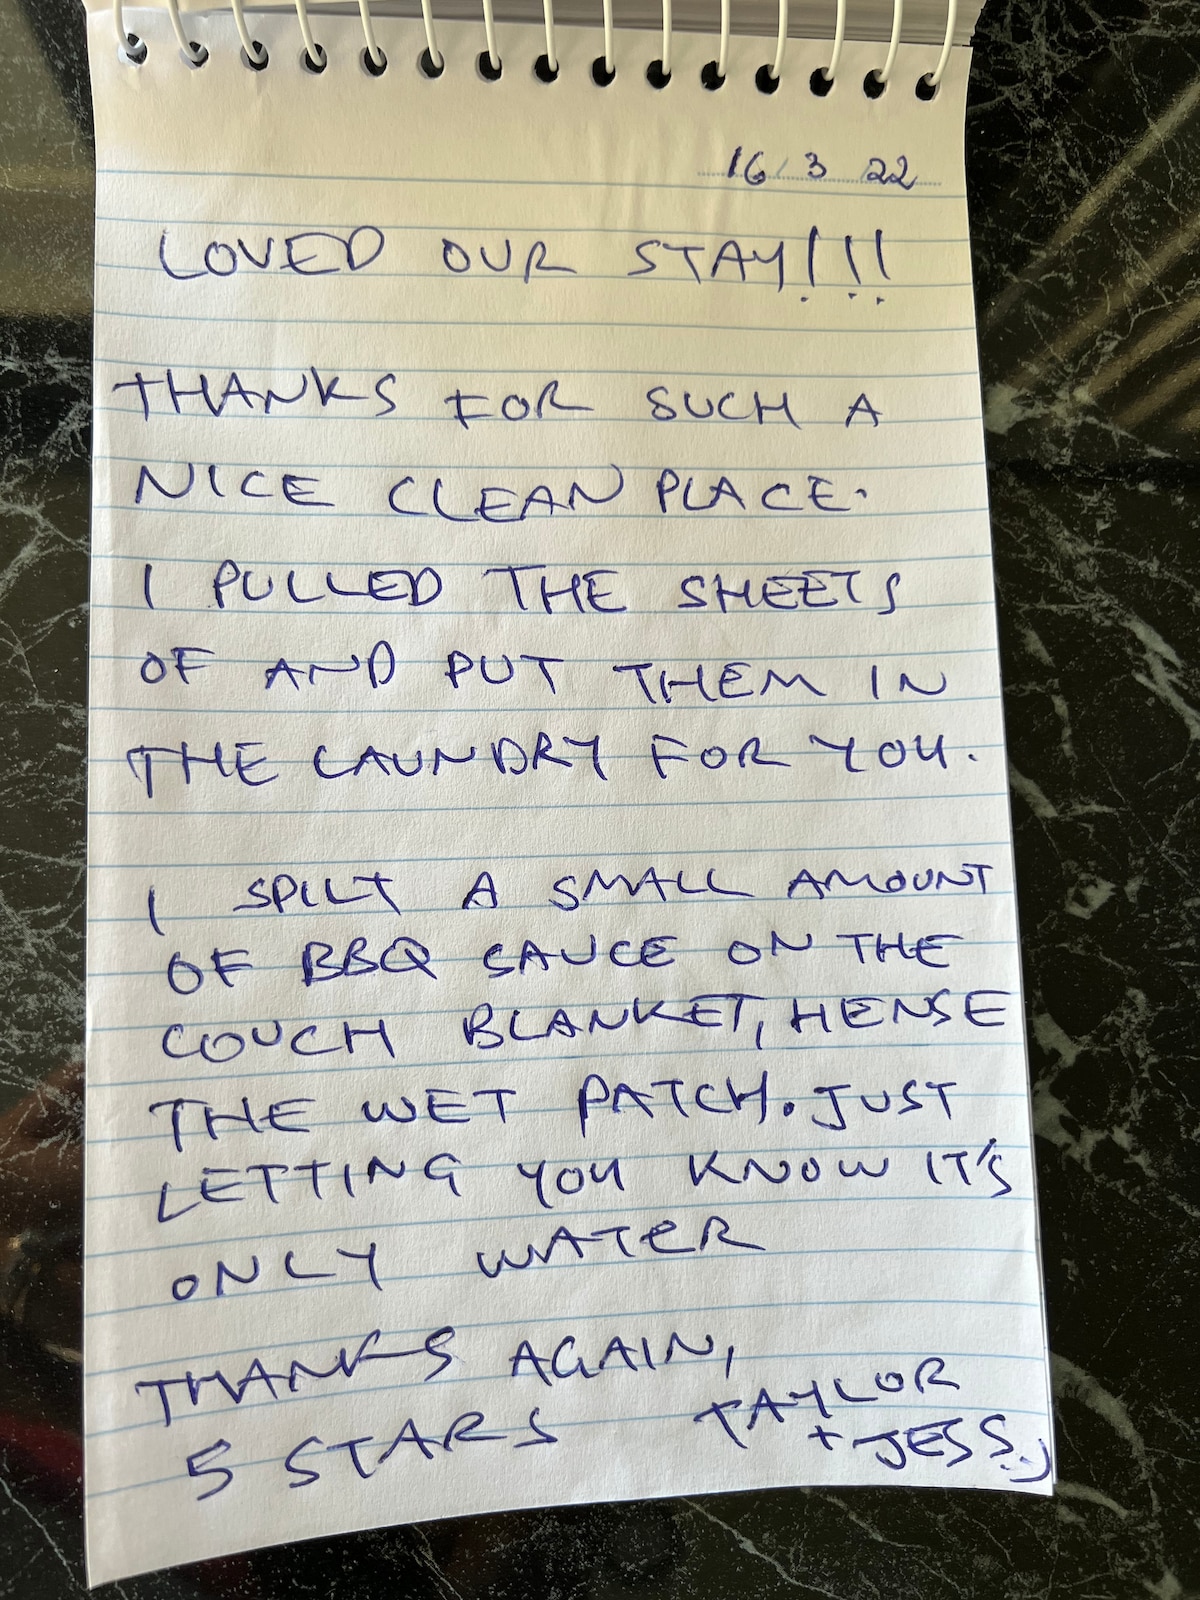 16/3 22
LOVED OUR STAY!!!
THANKS FOR SUCH A
NICE CLEAN PLACE.
I PULLED THE SHEETS
OF AND PUT THEM IN
THE LAUNDRY FOR YOU.
I SPILT A SMALL AMOUNT
OF BBQ SAUCE ON THE
COUCH BLANKET, HENSE
THE WET PATCH. JUST
LETTING YOU KNOW IT'S
ONLY WATER
THANKS AGAIN,
5 STARS TAYLOR
+ JESS :)